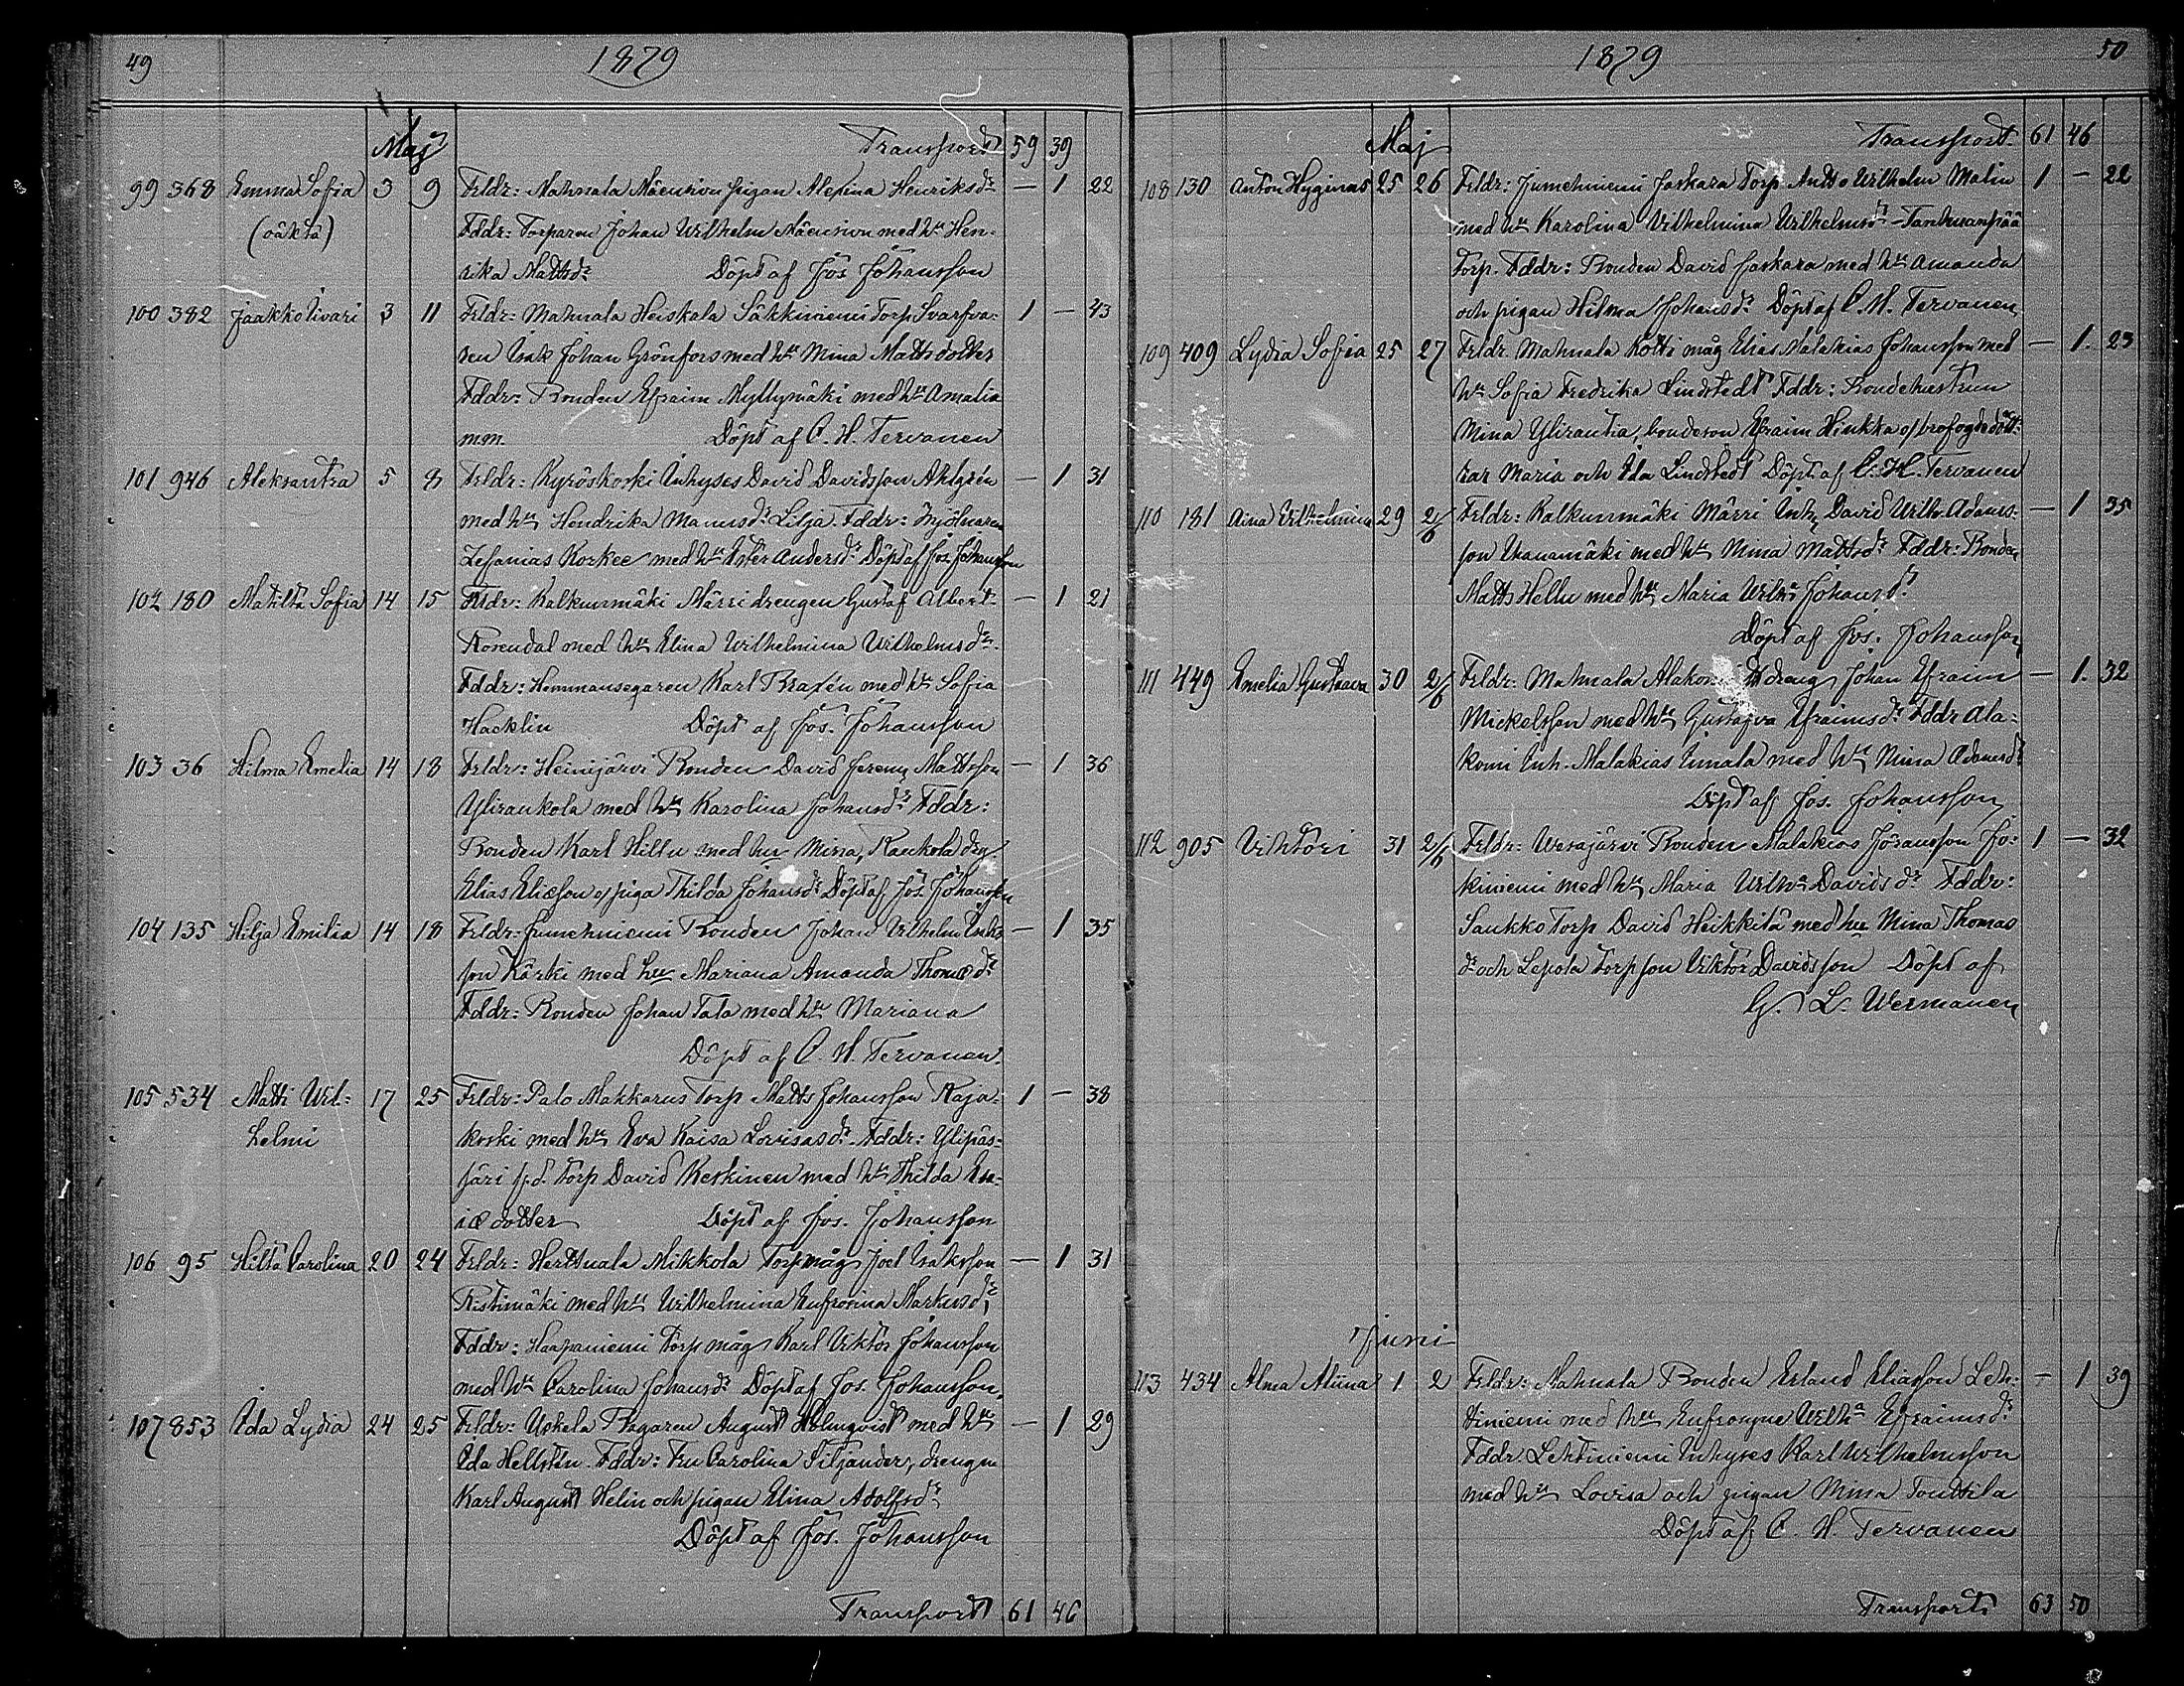 49
1879
Maj
Transport 59 39
99 368 Emma Sofia 3 9 Frldr: Mahnala Mäensivu pigan Alexina Henriksdr — 1 22
(oäkta) Fddr: Torparen Johan Wilhelm Mäensivu med hu Hen-
rika Mattsdr Döpt af Jos Johansson
100 382 Jaakko Iivari 3 11 Frldr: Mahnala Heiskala Säkkiniemi Torp Svarfva- 1 — 43
ren Isak Johan Grönfors med hu Mina Mattsdotter
Fddr: Bonden Efraim Myllymäki med hu Amalia
m.m. Döpt af C. H. Tervanen
101 946 Aleksantra 5 8 Frldr: Kyröskoski Inhyses David Davidsson Ahlgrén — 1 31
med hu Hendrika Manusdr Lilja. Fddr: Mjölnaren
Zefanias Korkee med hu Ester Andersdr Döpt af Jos. Johansson
102 180 Matilta Sofia 14 15 Frldr: Kalkunmäki Märri drengen Gustaf Albert — 1 21
Rosendal med hu Elina Wilhelmina Wilhelmsdr
Fddr: Hemmansegaren Karl Braxén med hu Sofia
Hacklin Döpt af Jos. Johansson
103 36 Hilma Emelia 14 18 Frldr: Heinijärvi Bonden David Jerem Mattsson — 1 36
Yliraukola med hu Karolina Johansdr Fddr:
Bonden Karl Hillu med hu Mina, Raukola dreng
Elias Eliesson o/ piga Thilda Johansdr Döpt af Jos. Johansson
104 135 Hilja Emilia 14 18 Frldr: Jumehniemi Bonden Johan Wilhelm Isaks- — 1 35
son Kärki med hu Mariana Amanda Thomædr
Fddr: Bonden Johan Tala med hu Mariana
Döpt af C. H. Tervanen.
105 534 Matti Wil- 17 25 Frldr: Palo Makkarus Torp Matts Johansson Raja- 1 — 38
helmi koski med hu Eva Kaisa Lovisasdr. Fddr: Ylipäs-
säri f.d. Torp David Keskinen med hu Thilda Esa-
iædotter Döpt af Jos. Johansson
106 95 Hilta Carolina 20 24 Frldr: Herttuala Mikkola Torpmåg Joel Isaksson — 1 31
Ristimäki med hu Wilhelmina Eufrosina Markusdr,
Fddr: Haapaniemi Torpmåg Karl Viktor Johansson
med hu Carolina Johansdr Döpt af Jos. Johansson.
107 853 Ida Lydia 24 25 Frldr: Uskela Bagaren August Holmqvist med hu — 1 29
Ida Hellsten. Fddr: Fru Carolina Tiljander, drengen
Karl August Helin och pigan Elina Adolfsdr
Döpt af Jos. Johansson
Transport 61 46
1879
50
Maj
Transport 61 46
108 130 Anton Hyginus 25 26 Frldr: Jumehniemi Jaskara Torp Antto Wilhelm Malin 1 — 22
med hu Karolina Wilhelmina Wilhelmsdr – Tanhuanpää
Torp. Fddr: Bonden David Jaskara med hu Amanda
och pigan Hilma Johansdr Döpt af C. H. Tervanen
109 409 Lydia Sofia 25 27 Frldr. Mahnala Kotti måg Elias Malakias Johansson med — 1. 23
hu Sofia Fredrika Lindstedt Fddr: Bondehustrun
Mina Ylirautia, bondeson Efraim Hinkka o/ brofogdedött-
rar Maria och Ida Lindstedt Döpt af C. H. Tervanen
110 181 Aina Wilhelmina 29 2/6 Frldr: Kalkunmäki Märri Inh. David Wilh. Adams- — 1 35
son Ukanamäki med hu Mina Mattsdr Fddr: Bonden
Matts Hellu med hu Maria Wilha Johansdr
Döpt af Jos. Johansson
111 449 Emelia Gustaava 30 2/6 Frldr: Mahnala Alakomi dreng Johan Efraim — 1. 32
Mickelsson med hu Gustafva Efraimsdr Fddr Ala-
komi Inh. Malakias Innala med hu Mina Adamsdr
Döpt af Jos. Johansson
112 905 Vihtori 31 2/6 Frldr: Vesajärvi Bonden Malakias Jöransson Jo- 1 — 32
kiniemi med hu Maria Wilha Davidsdr Fddr:
Saukko Torp David Heikkilä med hu Mina Thomas
dr och Lepola Torpson Viktor Davidsson Döpt af
G. L. Wermanen
Juni
113 434 Alma Aliina 1 2 Frldr: Mahnala Bonden Erland Eliasson Leh- — 1 39
tiniemi med hu Eufrosyne Wilha Efraimsdr
Fddr. Lehtiniemi Inhyses Karl Wilhelmsson
med hu Lovisa och pigan Mina Tonttila
Döpt af C. H. Tervanen
Transport 63 50